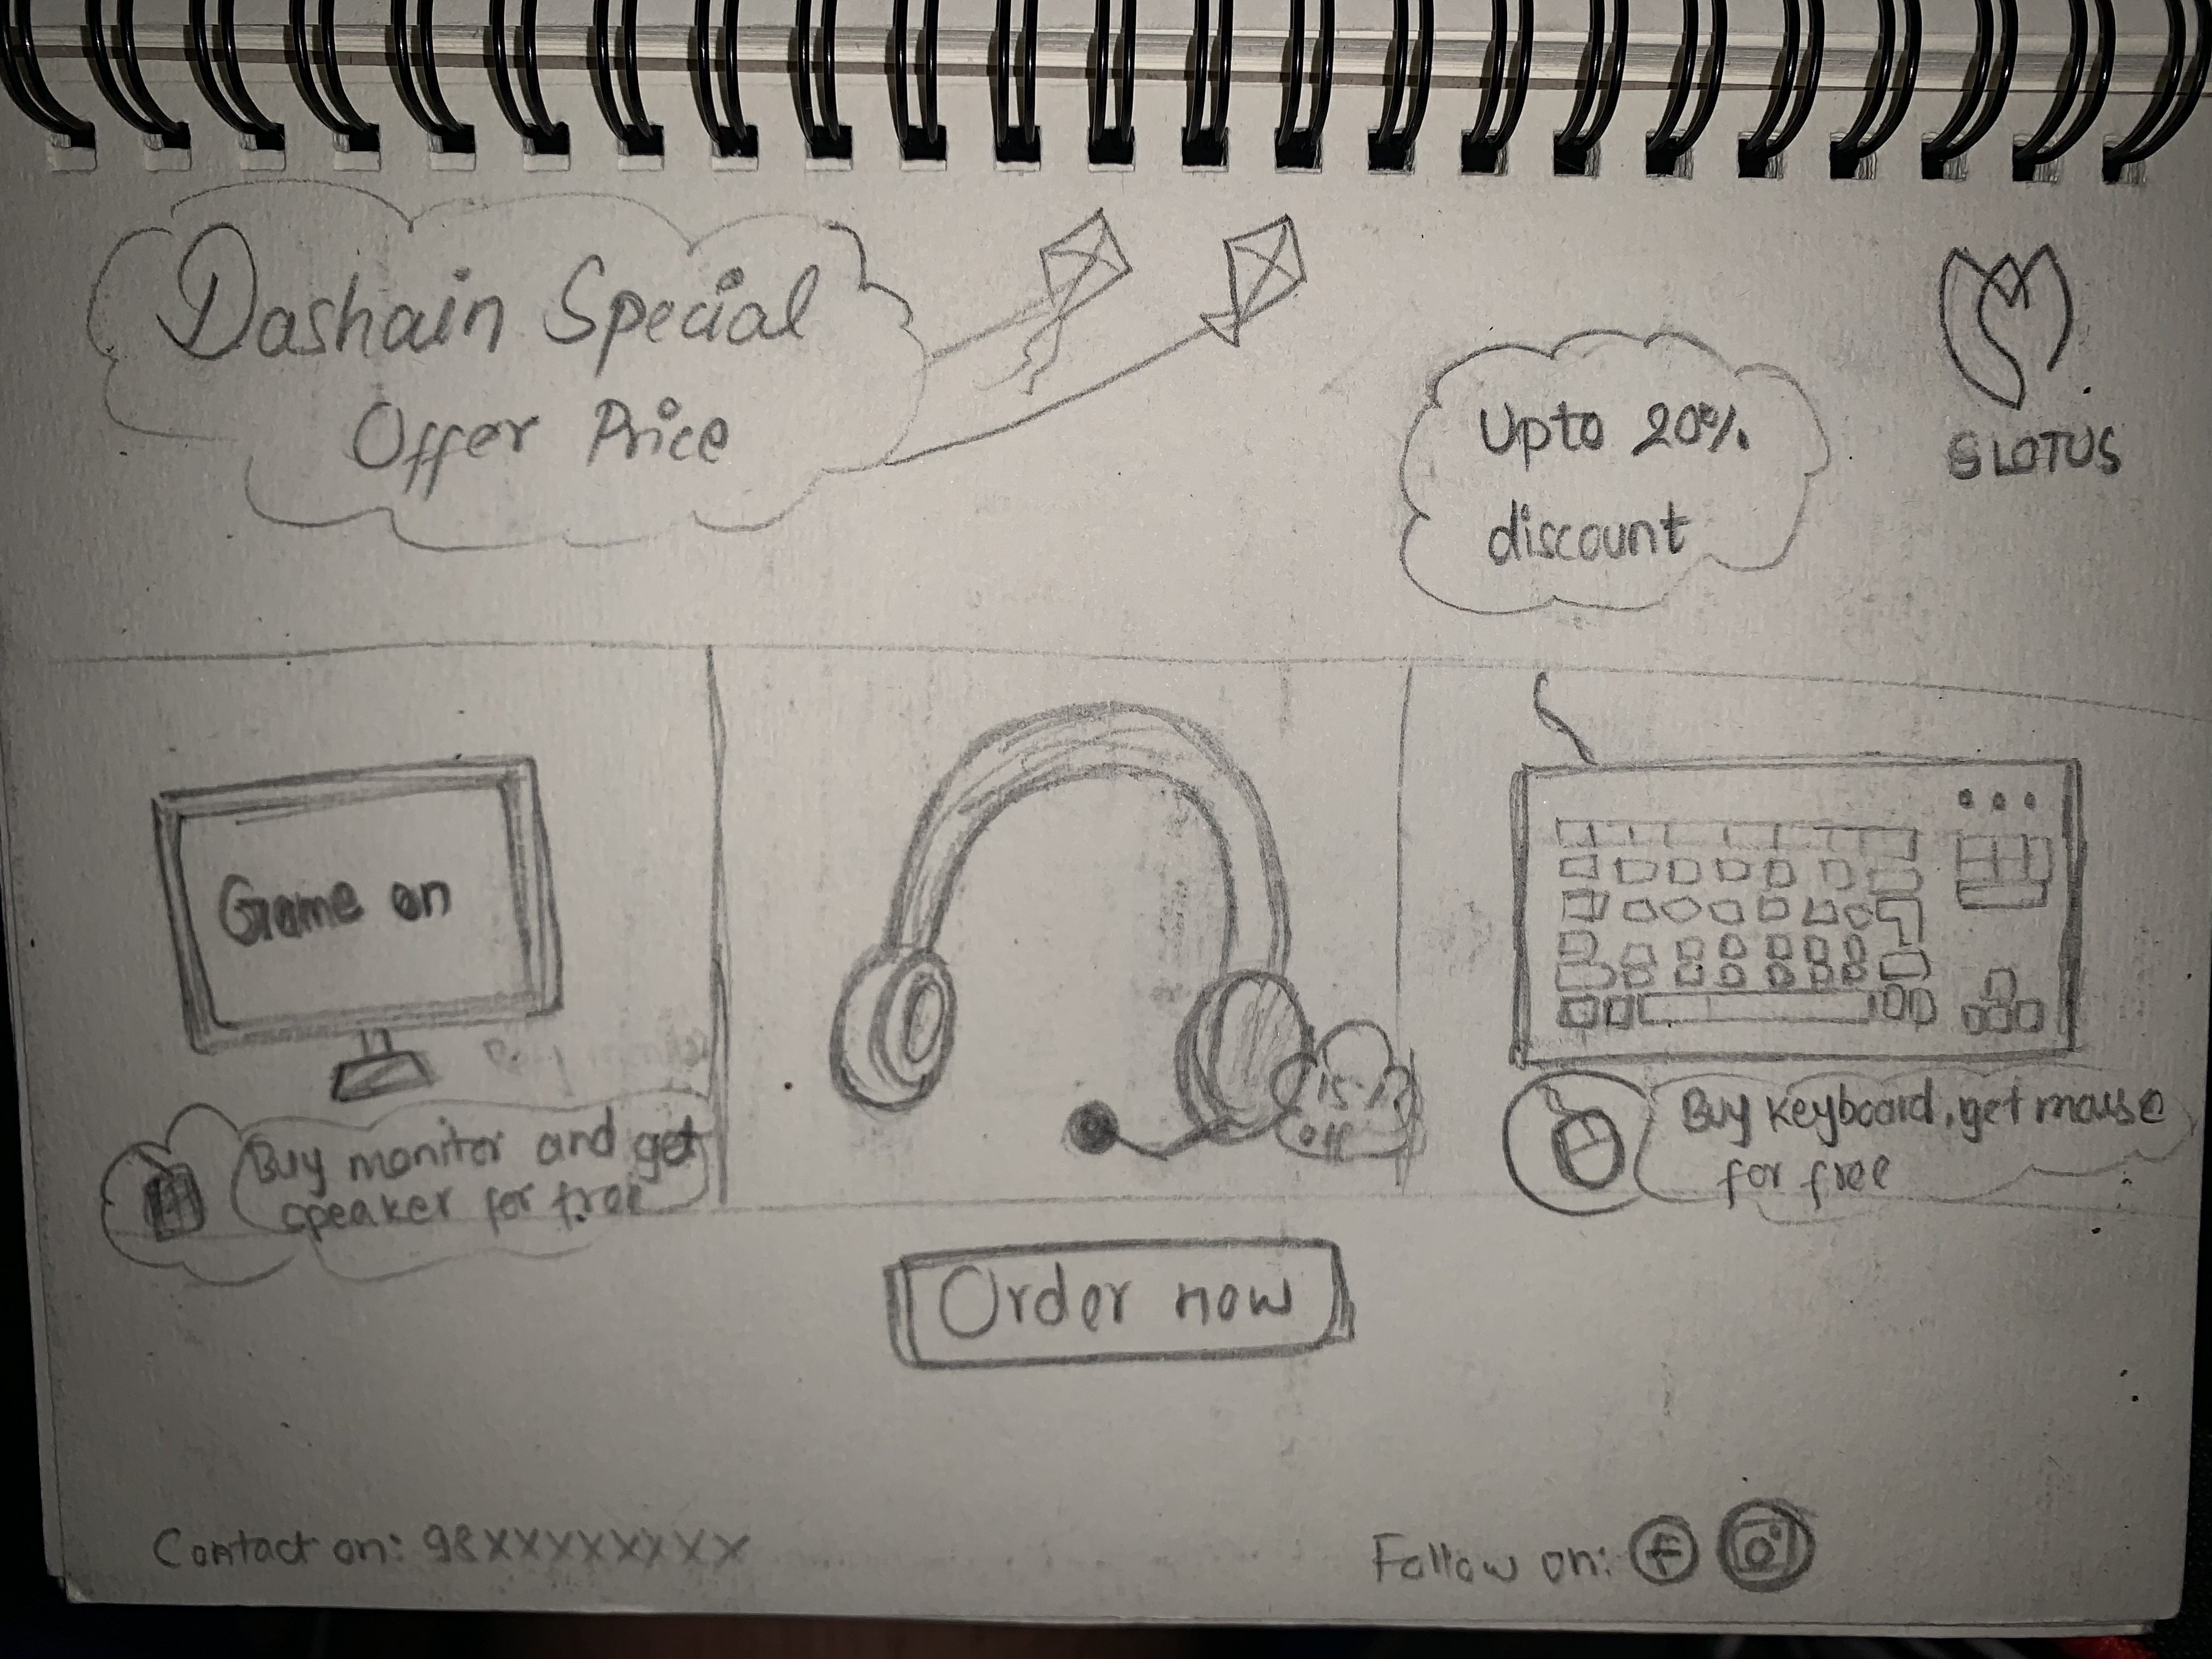 Dashain Special
Offer Price
Upto 20%
discount
SLOTUS
Game on
Buy monitor and get
speaker for free
15%
off
Buy keyboard, get mouse
for free
Order now
Contact on: 98XXXXXXXX
Follow on: f